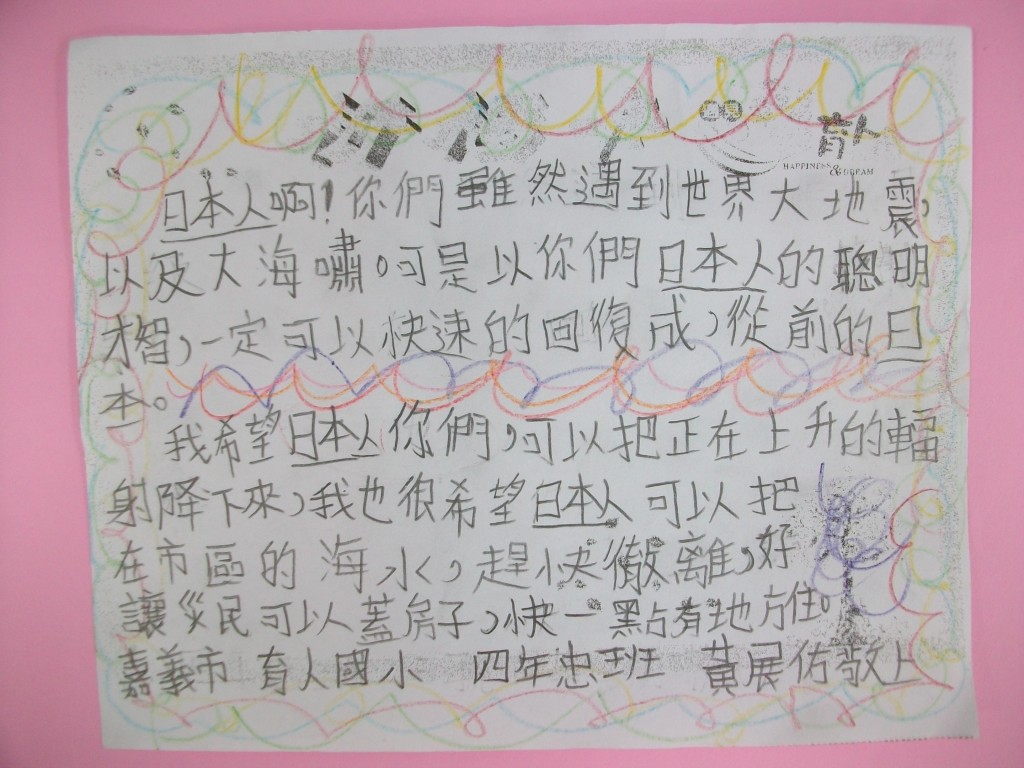 HAPPINESS
& DREAM
日本人啊!你們雖然遇到世界大地震,
以及大海嘯。可是以你們日本人的聰明
才智,一定可以快速的回復成,從前的日
本。
我希望日本人你們,可以把正在上升的輻
射降下來,我也很希望日本人可以把
在市區的海水,趕快徹離,好
讓災民可以蓋房子,快一點有地方住。
嘉義市 育人國小 四年忠班 黃展佑敬上